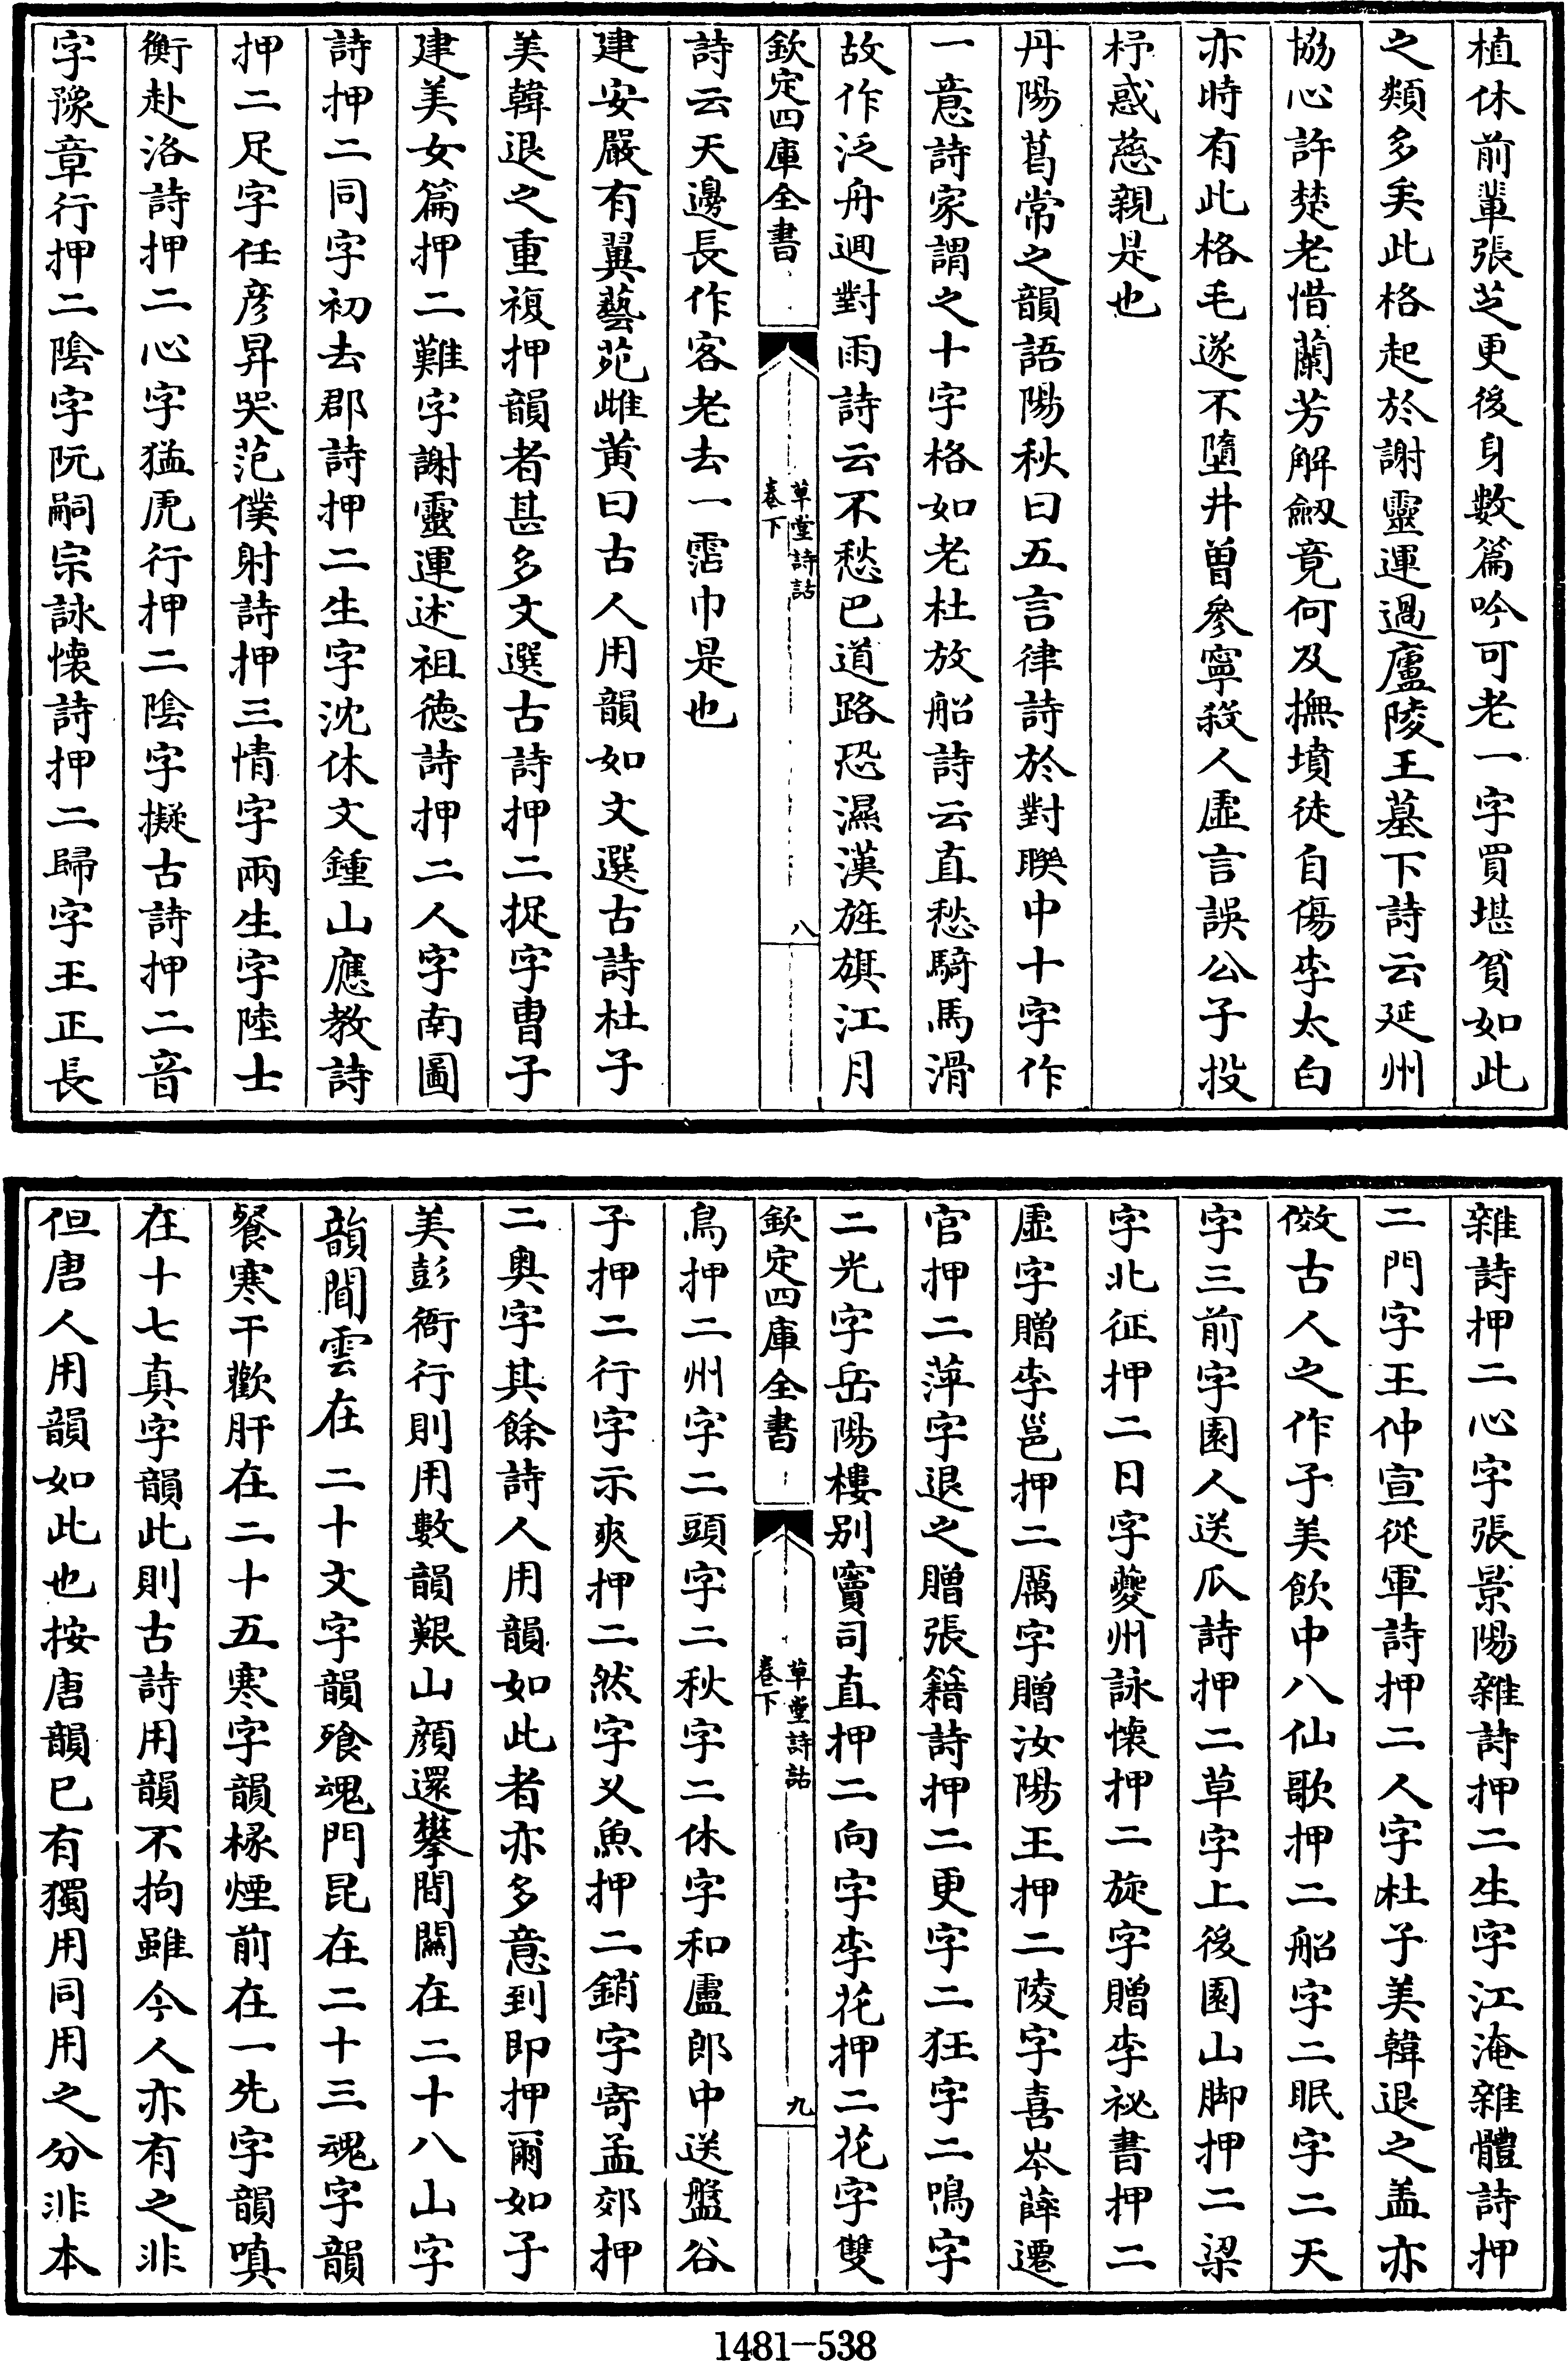 植休前輩張芝更後身數篇吟可老一字買堪貧如此
之類多矣此格起於謝靈運過廬陵王墓下詩云延州
協心許楚老惜蘭芳解劔竟何及撫墳徒自傷李太白
亦時有此格毛遂不墮井曽參寧殺人虛言誤公子投
杼惑慈親是也
丹陽葛常之韻語陽秋曰五言律詩於對聨中十字作
一意詩家謂之十字格如老杜放船詩云直愁騎馬滑
故作泛舟迴對雨詩云不愁巴道路恐濕漢旌旗江月
欽定四庫全書
草堂詩話
卷下
八
詩云天邊長作客老去一霑巾是也
建安嚴有翼藝苑雌黄曰古人用韻如文選古詩杜子
美韓退之重複押韻者甚多文選古詩押二捉字曹子
建美女篇押二難字謝靈運述祖徳詩押二人字南圖
詩押二同字初去郡詩押二生字沈休文鍾山應教詩
押二足字任彦昇哭范僕射詩押三情字兩生字陸士
衡赴洛詩押二心字猛虎行押二隂字擬古詩押二音
字豫章行押二隂字阮嗣宗詠懐詩押二歸字王正長
雜詩押二心字張景陽雜詩押二生字江淹雜體詩押
二門字王仲宣從軍詩押二人字杜子美韓退之盖亦
傚古人之作子美飲中八仙歌押二船字二眠字二天
字三前字園人送瓜詩押二草字上後園山脚押二梁
字北征押二日字夔州詠懐押二旋字贈李祕書押二
虛字贈李邕押二厲字贈汝陽王押二陵字喜岑薛遷
官押二萍字退之贈張籍詩押二更字二狂字二鳴字
二光字岳陽樓别竇司直押二向字李花押二花字雙
欽定四庫全書
草堂詩話
卷下
九
鳥押二州字二頭字二秋字二休字和盧郎中送盤谷
子押二行字示爽押二然字又魚押二銷字寄孟郊押
二奥字其餘詩人用韻如此者亦多意到即押爾如子
美彭衙行則用數韻艱山顔還攀間關在二十八山字
韻聞雲在二十文字韻飱魂門昆在二十三魂字韻
餐寒干歡肝在二十五寒字韻椽煙前在一先字韻嗔
在十七真字韻此則古詩用韻不拘雖今人亦有之非
但唐人用韻如此也按唐韻已有獨用同用之分非本
1481-538